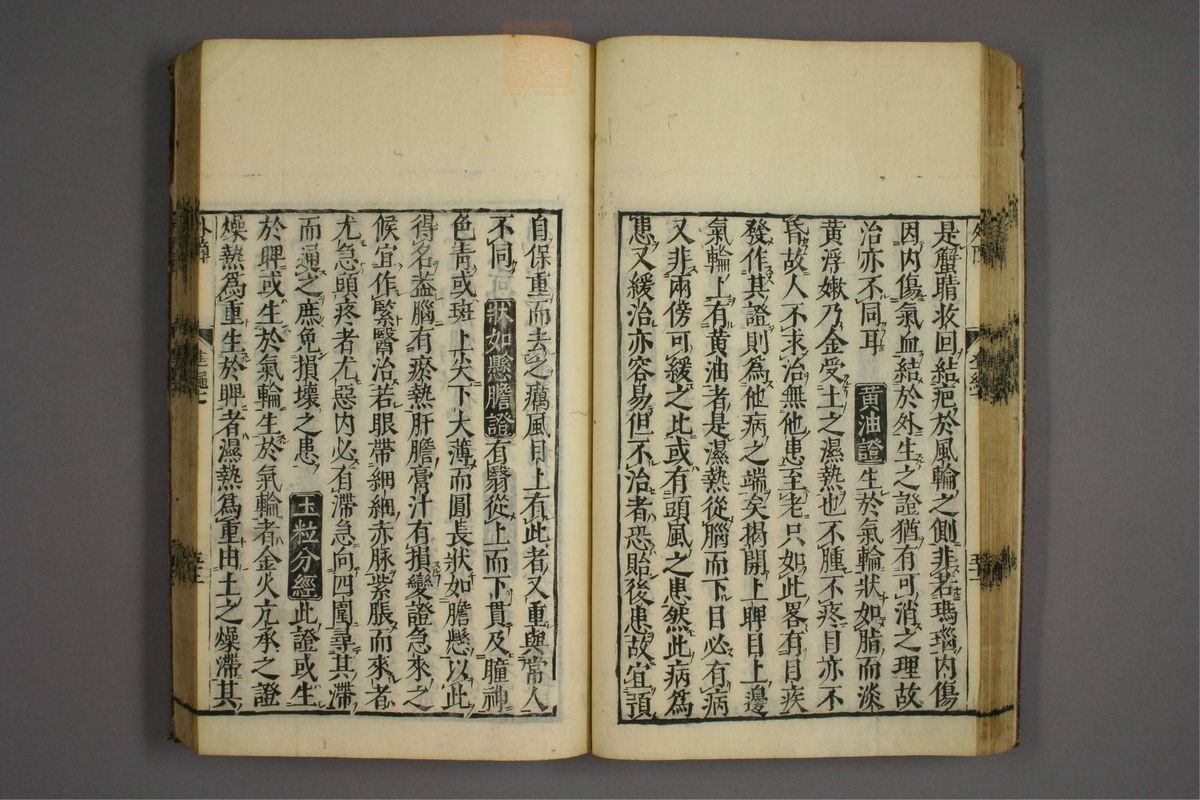 是蟹睛收回結疤於風輪之側非若瑪瑙内傷
因内傷氣血結於外生之證猶有可消之理故
治亦不同耳 黄油證 生於氣輪狀如脂而淡
黄浮嫩乃金受土之濕熱也不腫不疼目亦不
昏故人不求治無他患至老只如此畧有目疾
發作其證則為他病之端矣揭開上睥目上邊
氣輪上有黄油者是濕熱從腦而下目必有病
又非兩傍可緩之比或有頭風之患然此病為
患又緩治亦容易但不治者恐貽後患故宜預
自保重而去之癘風目上有此者又重與常人
不同 狀如懸膽證 有翳從上而下貫及瞳神
色青或斑上尖下大薄而圓長狀如膽懸以此
得名蓋腦有瘀熱肝膽膏汁有損變證急來之
候宜作緊醫治若眼帶細細赤脉紫脹而來者
尤急頭疼者尤惡内必有滯急向四圍尋其滯
而通之庶免損壞之患 玉粒分經 此證或生
於睥或生於氣輪生於氣輪者金火亢承之證
燥熱為重生於睥者濕熱為重由土之燥滯其